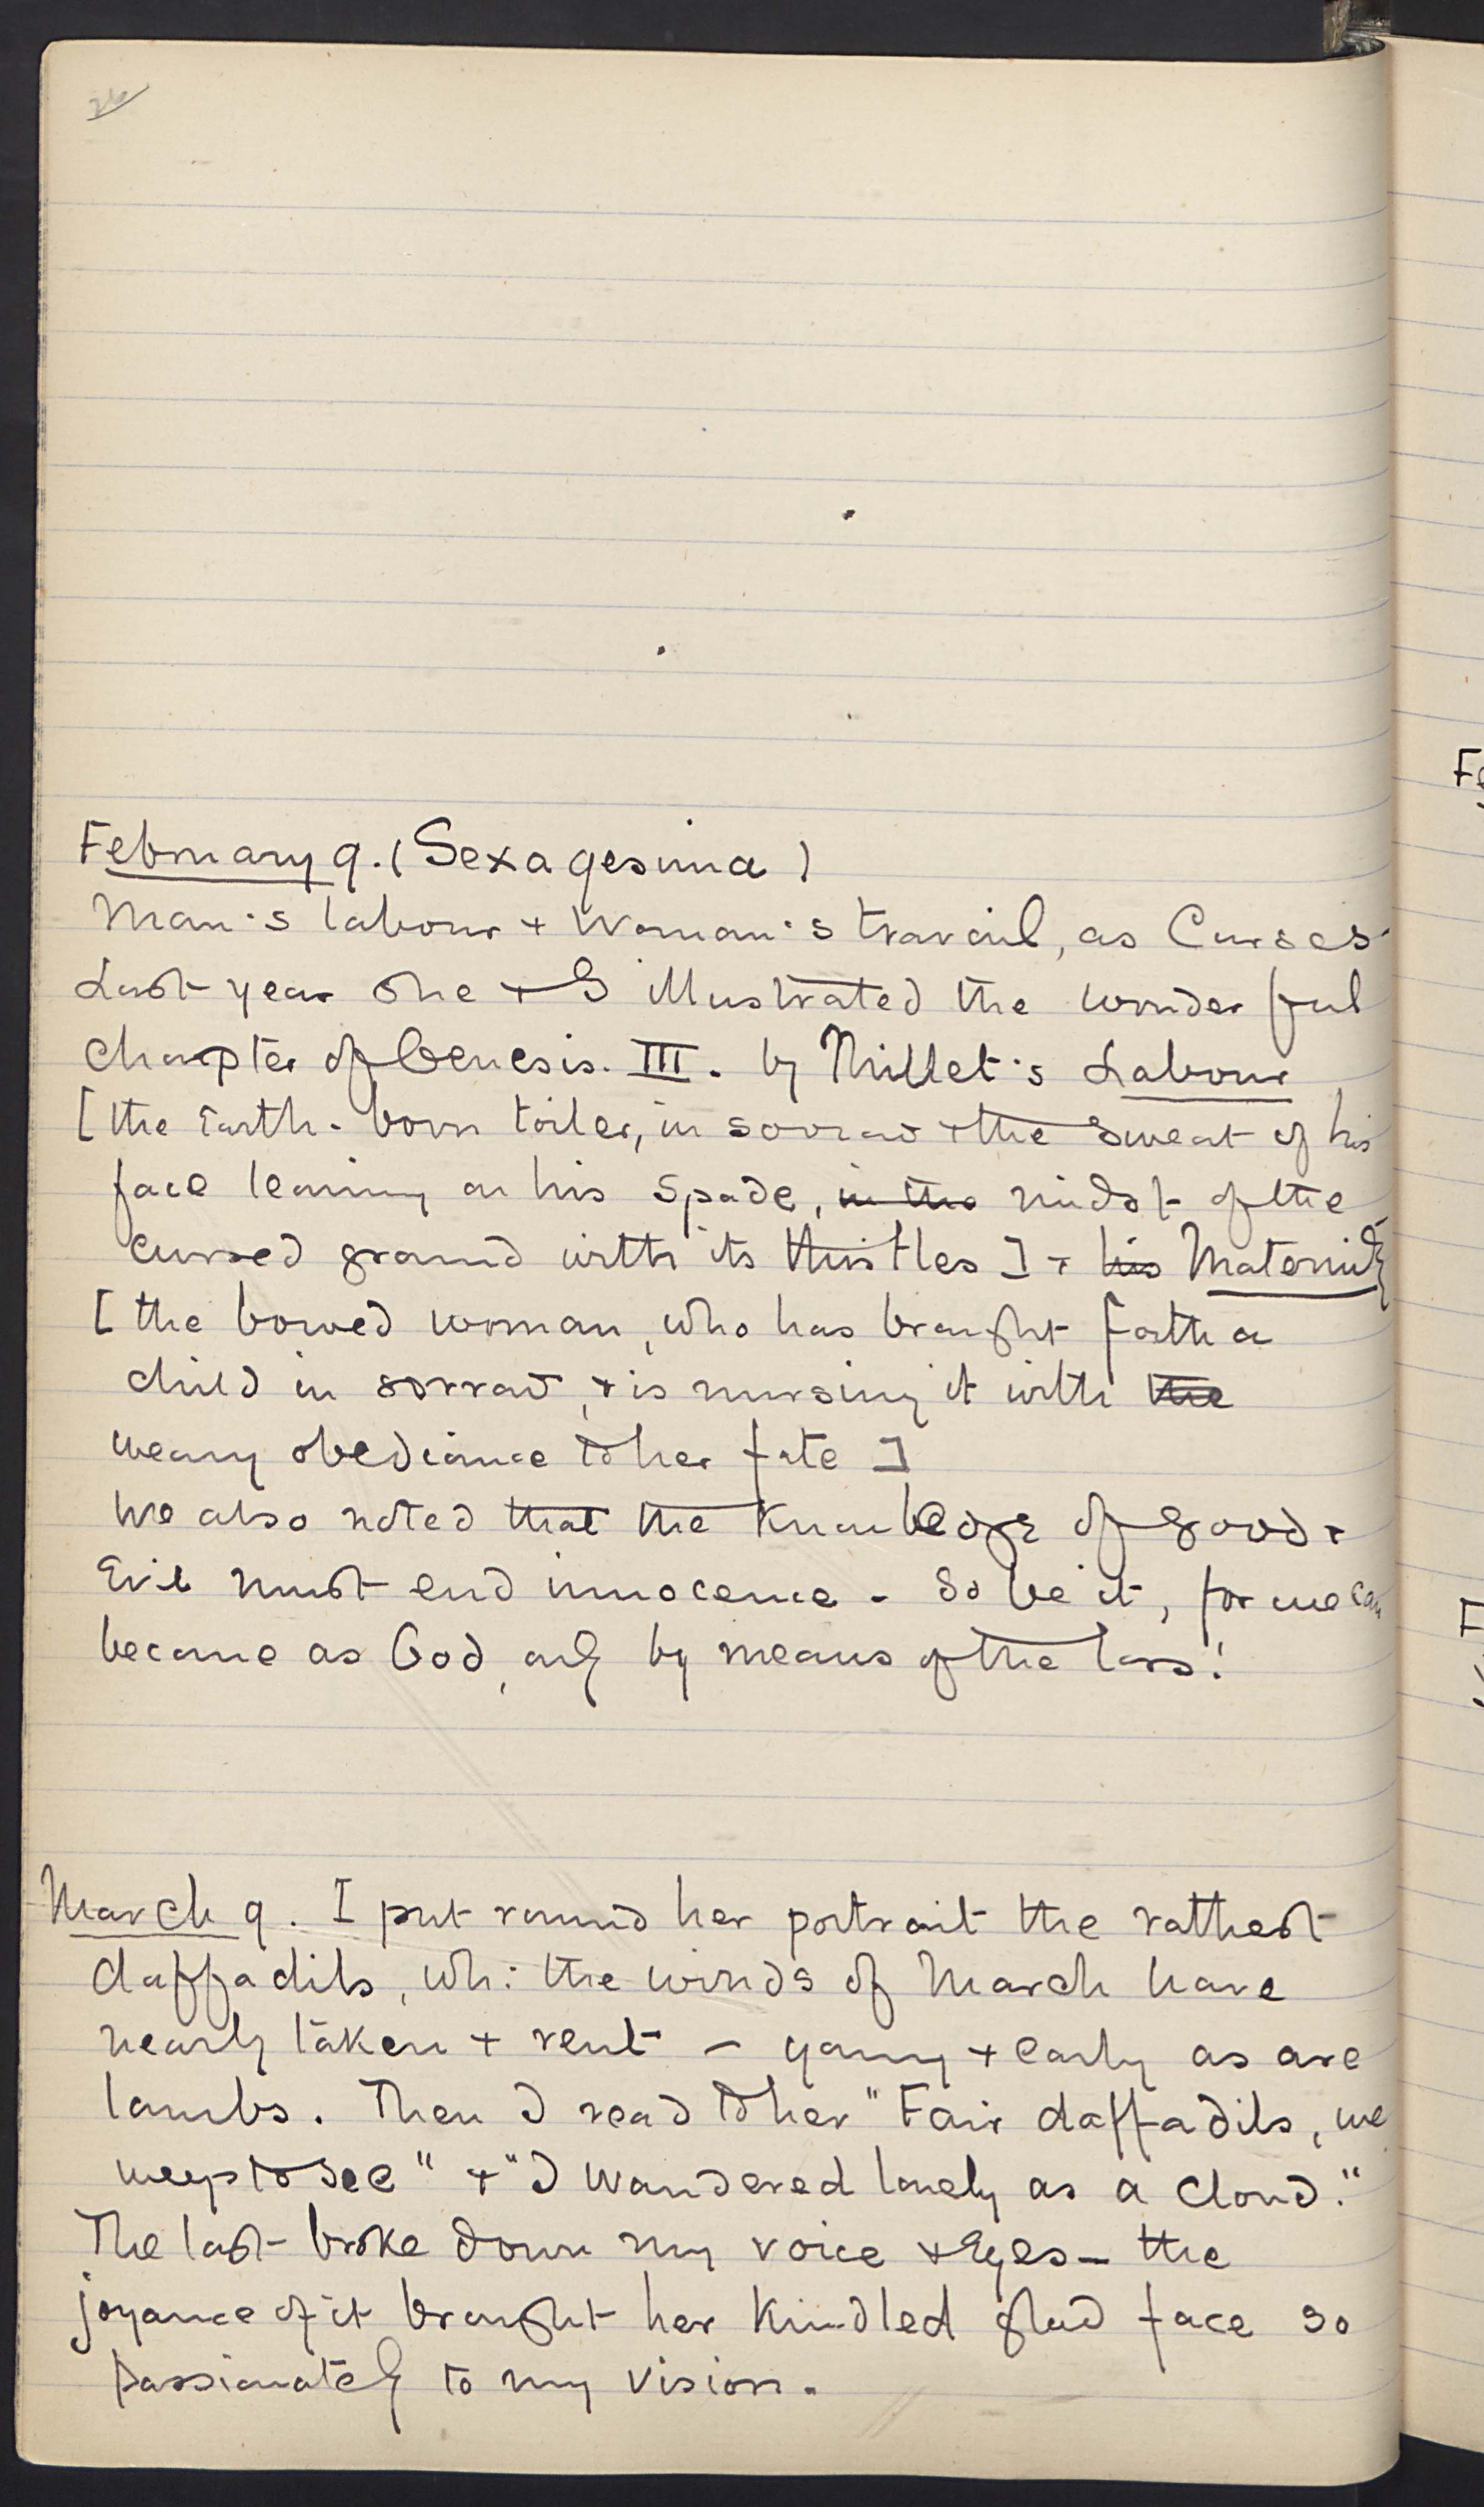 February 9. (Sexagesima)
Man's labour + Woman's travail, as Curses
Last year She + I illustrated the wonderful
chapter of Genesis. III. by Millet's Labour
[the Earth-born toiler, in sorrow + the sweat of his
face leaning on his spade, in the midst of the
cursed ground with its thistles] + his Maternity
[the bowed woman, who has brought forth a
child in sorrow, + is nursing it with the
weary obedience to her fate]
We also noted that the Knowledge of Good +
Evil must end innocence - So be it, for we can
become as God, only by means of the loss!
March 9. I put round her portrait the rathest
daffadils, wh: the winds of March have
nearly taken + rent - young + early as are
lambs. Then I read to her "Fair daffadils, we
weep to see" + "I wandered lonely as a cloud."
The last broke down my voice + Eyes - the
joyance of it brought her kindled glad face so
passionately to my vision.